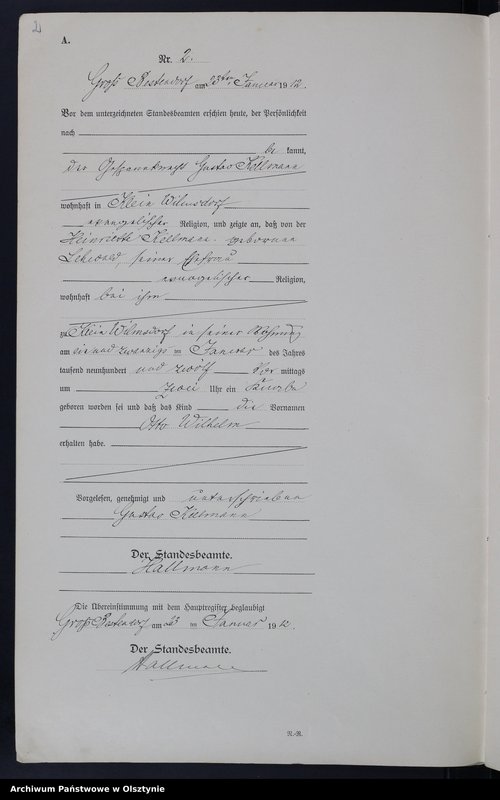 2
A.
Nr. 2.
Groß Bestendorf am 23ten Januar 1912.
Vor dem unterzeichneten Standesbeamten erschien heute, der Persönlichkeit
nach
be kannt,
der Gespannknecht Gustav Kellmann
wohnhaft in Klein Wilmsdorf
evangelischer Religion, und zeigte an, daß von der
Heinriette Kellmann geborenen
seiner Ehefrau
evangelischer Religion,
wohnhaft bei ihm
zu Klein Wilmsdorf in seiner Wohnung
am ein und zwanzigs ten Januar des Jahres
tausend neunhundert und zwölf Vor mittags
um zwei Uhr ein Knabe
geboren worden sei und daß das Kind die Vornamen
Otto Wilhelm
erhalten habe.
Vorgelesen, genehmigt und unterschrieben
Gustav Kellmann
Der Standesbeamte.
Hallmann
Die Übereinstimmung mit dem Hauptregister beglaubigt
Groß Bestendorf am 23 ten Januar 1912.
Der Standesbeamte.
Hallmann
N.-R.
Archiwum Państwowe w Olsztynie